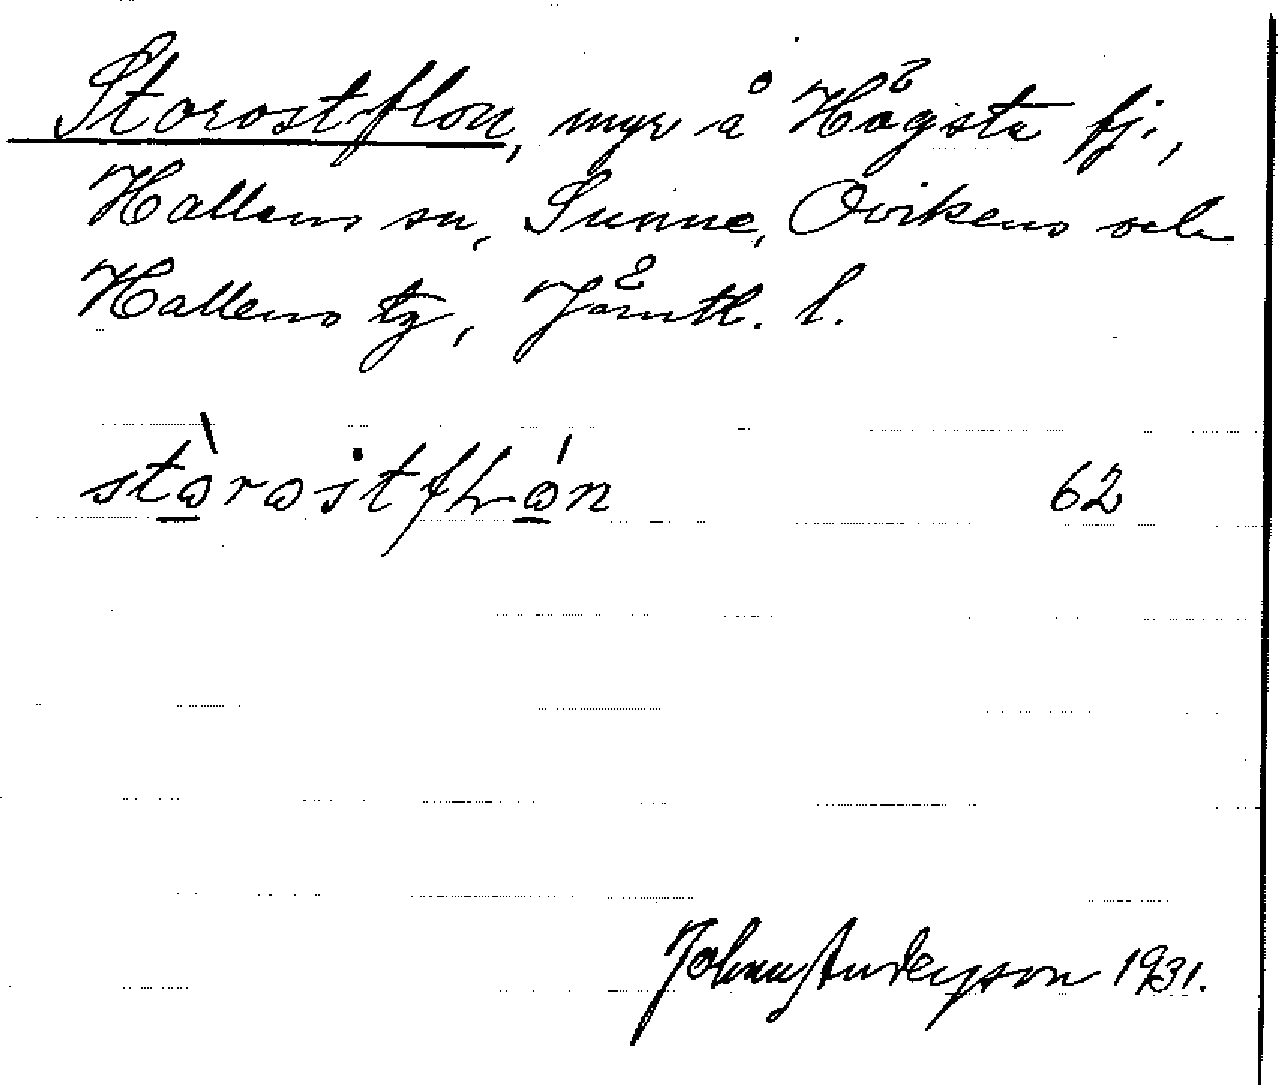 Storostflon, myr å Hågsta fj.,
Hallens sn, Sunne, Ovikens och
Hallens tg, Jämtl. l.
62
John Anderson 1931.